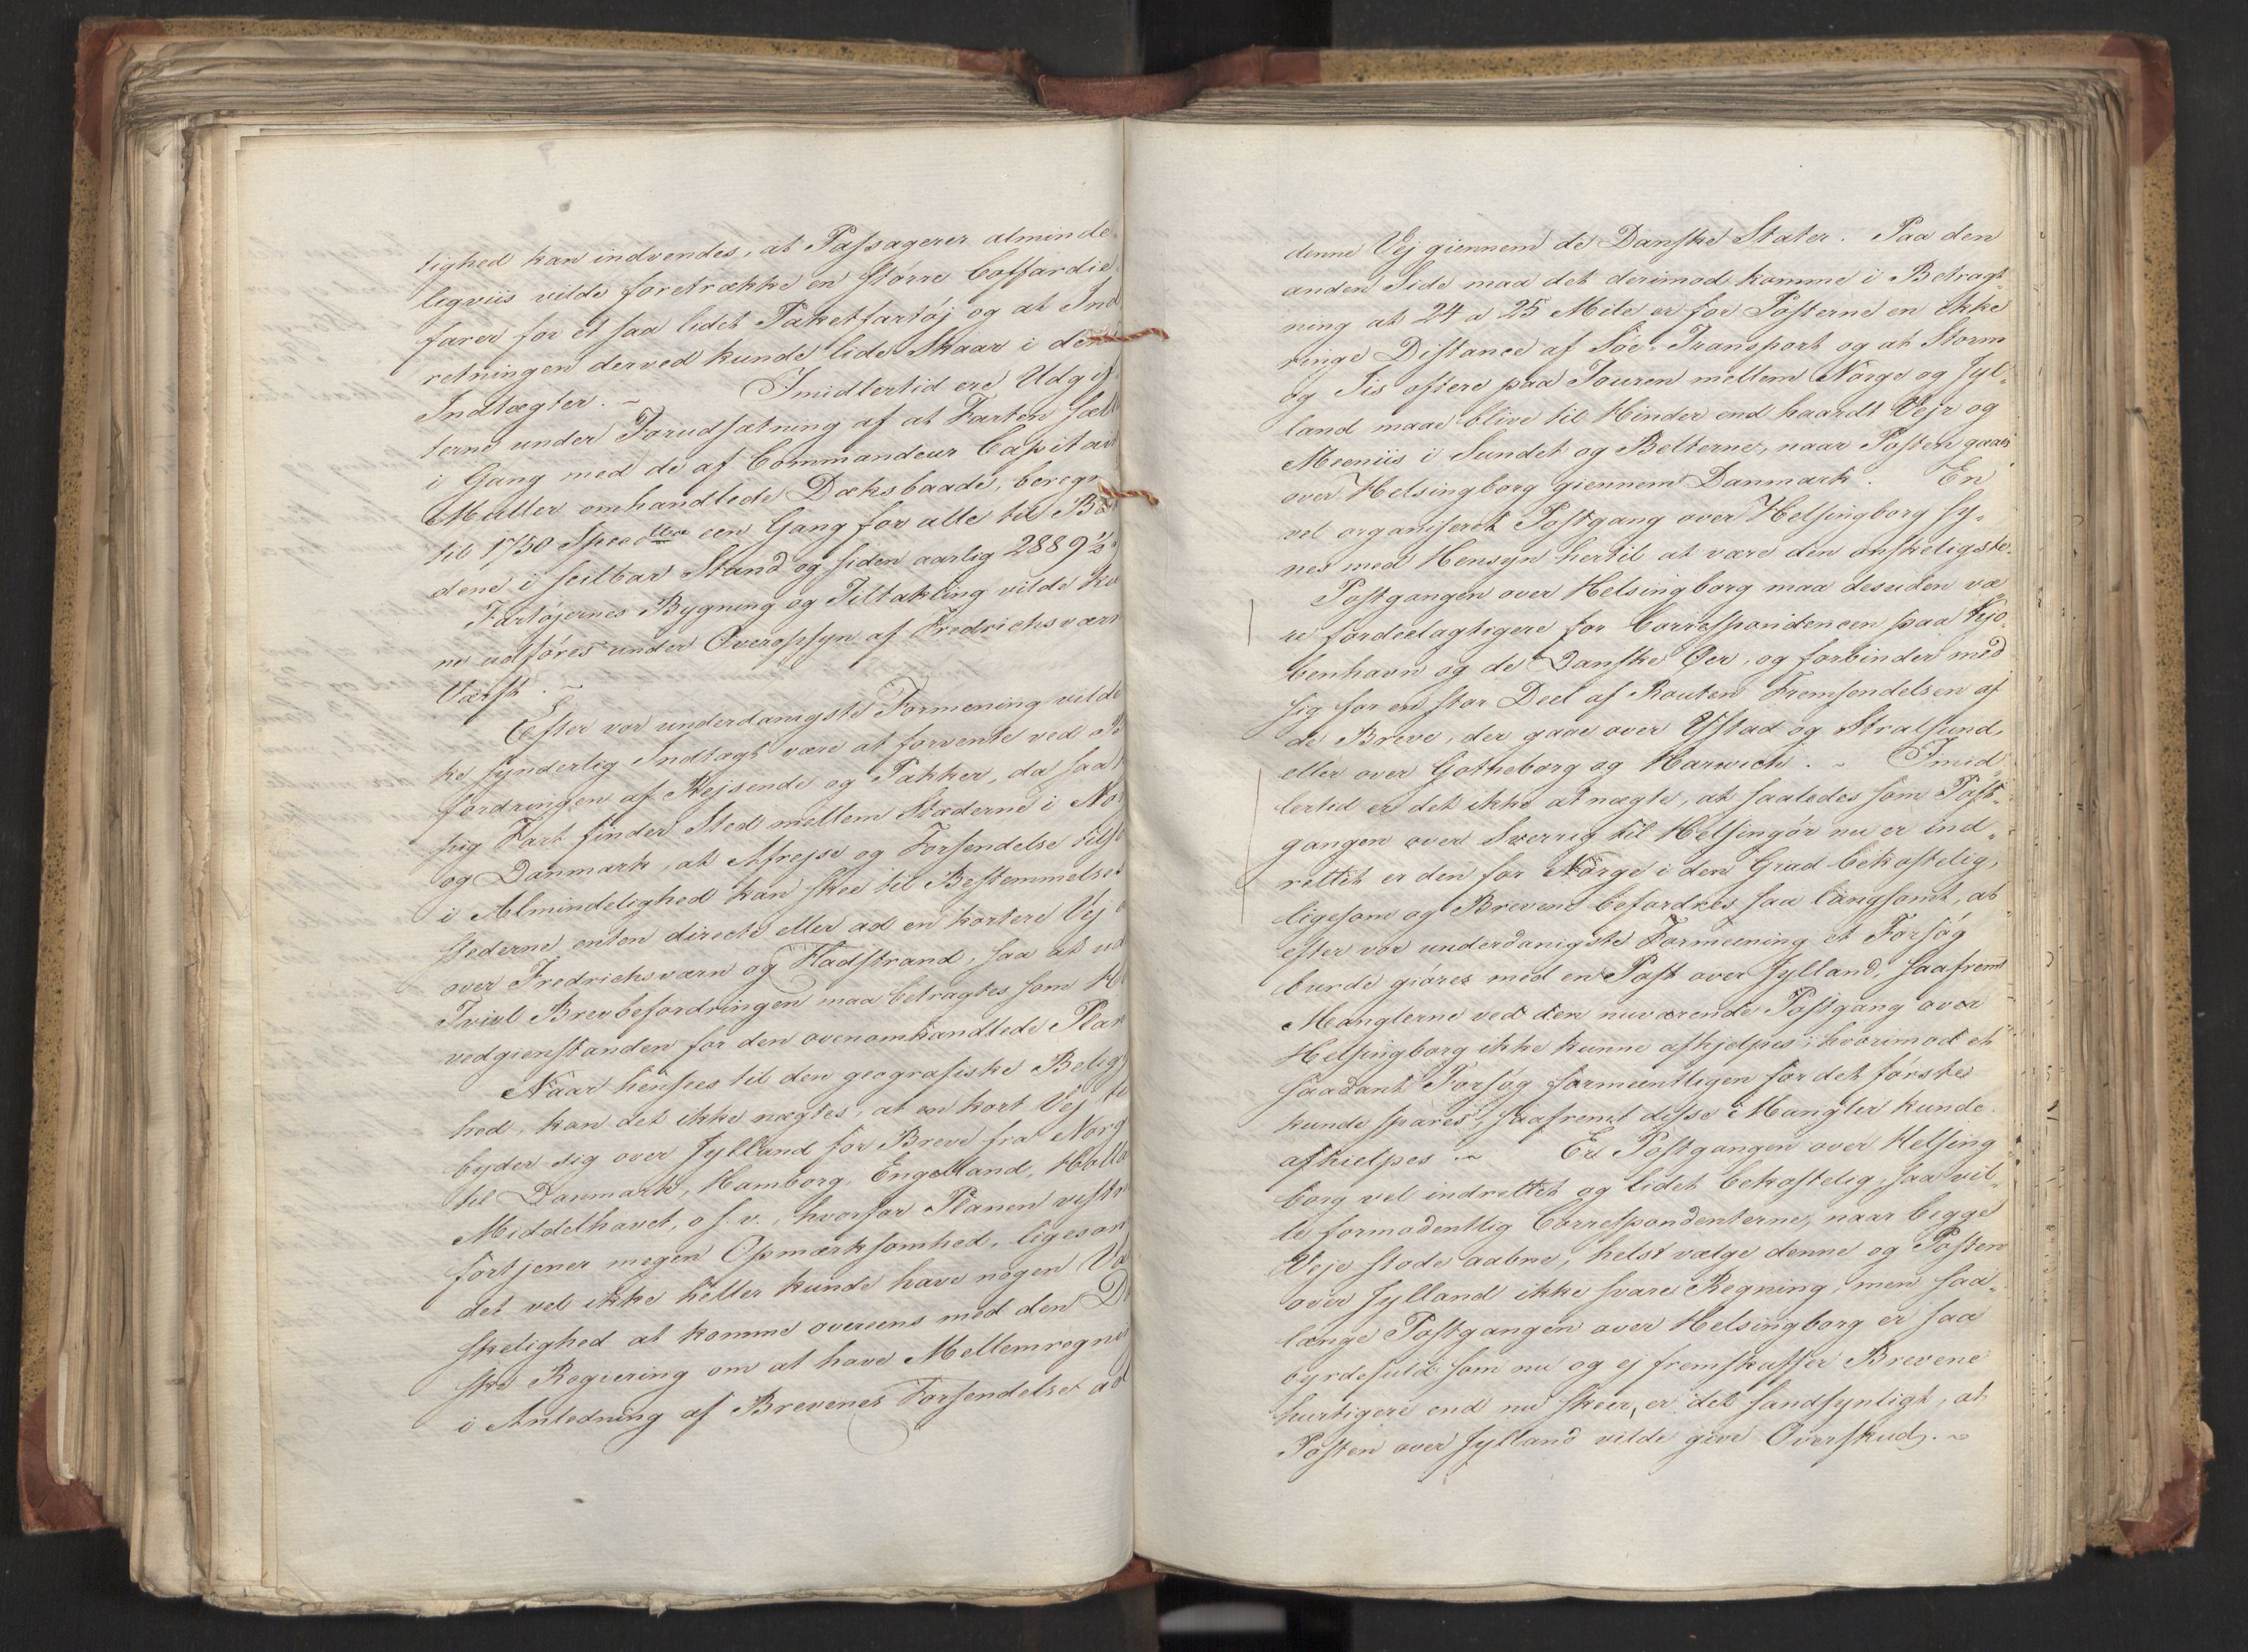 tighed kan indvendes, at Passagerer alminde-
ligviis vilde foretrække en større Coffardie-
farer for et saa lidet Paketfartøj og at Ind
retningen derved kunde lide Skaar i dens
Indtægter. ~ Imidlertid ere Udgif
terne under Forudsætning af at Farten sætt
i Gang med de af Commandeur Capitain
Müller omhandlede Dæksbaade, beregn
til 1750 Species een Gang for alle til Baa
dene i seilbar Stand og siden aarlig 2889½
Fartøjernes Bygning og Tiltakling vilde kun
ne udføres under Overopsyn af Fredrichsværn
Værft. ~
Efter vor underdanigste Formening vilde
ke synderlig Indtægt være at forvente ved Be
fordringen af Rejsende og Pakker, da saa
pig Fart finder Sted mellem Stæderne i Nor
og Danmark, at Afrejse og Forsendelse
i Almindelighed kan skee til Bestemmelses
stederne enten directe eller ad en kortere Vej
over Fredrichsværn og Fladstrand, saa at ud
Tvivl Brevbefordringen maa betragtes som Ho
vedgienstanden for den ovenomhandlede Plan
Naar hensees til den geografiske Belig
hed, kan det ikke nægtes, at en kort Vej til
byder sig over Jylland for Breve fra Norg
til Danmark, Hamborg, Engelland, Holla
Middelhavet, o s. v., hvorfor Planen vistn
fortjener megen Opmærksomhed, ligesom
det vel ikke heller kunde have nogen Va
skelighed at komme overeens med den Da
ske Regiering om at have Mellemregni
i Anledning af Brevenes Forsendelse ad
denne Vej giennem de Danske Stater. Paa den
anden Side maa det derimod komme i Betragt
ning at 24 a 25 Mile er for Posterne en ikke
ringe Distance af Söe-Transport og at Storm
og Iis oftere paa Touren mellem Norge og Jyl-
land maae blive til Hinder end haardt Vejr og
Meeniis i Sundet og Belterne, naar Posten gaaer
over Helsingborg giennem Danmark. En
vel organiseret Postgang over Helsingborg sy-
nes med Hensyn hertil at være den ønskeligste.
Postgangen over Helsingborg maa desuden væ
re fordeelagtigere for Correspondencen paa Kjø-
benhavn og de Danske Øer, og forbinder med
sig for en stor Deel af Routen Fremsendelsen af
de Breve, der gaae over Ystad og Stralsund,
eller over Gotheborg og Harwich. ~ Imid
lertid er det ikke at nægte, at saaledes som Post-
gangen over Sverrig til Helsingör nu er ind-
rettet er den for Norge i den Grad bekostelig,
ligesom og Brevene befordres saa langsomt, at
efter vor underdanigste Formeening et Forsög
burde giöres med en Post over Jylland, saafremt
Manglerne ved den nuværende Postgang over
Helsingborg ikke kunne afhjelpes; hvorimod et
saadant Forsög formeentligen for det förste
kunde spares, saafremt disse Mangler kunde
afhielpes. ~ Er Postgangen over Helsing
borg vel indrettet og lidet bekostelig, saa vil-
le formodentlig Correspondenterne, naar begge
Veje stode aabne, helst vælge denne og Posten
over Jylland ikke svare Regning, men saa-
længe Postgangen over Helsingborg er saa
byrdefuld som nu og ej fremskaffer Brevene
hurtigere end nu skeer, er det sandsynligt, at
Posten over Jylland vilde give Overskud. ~